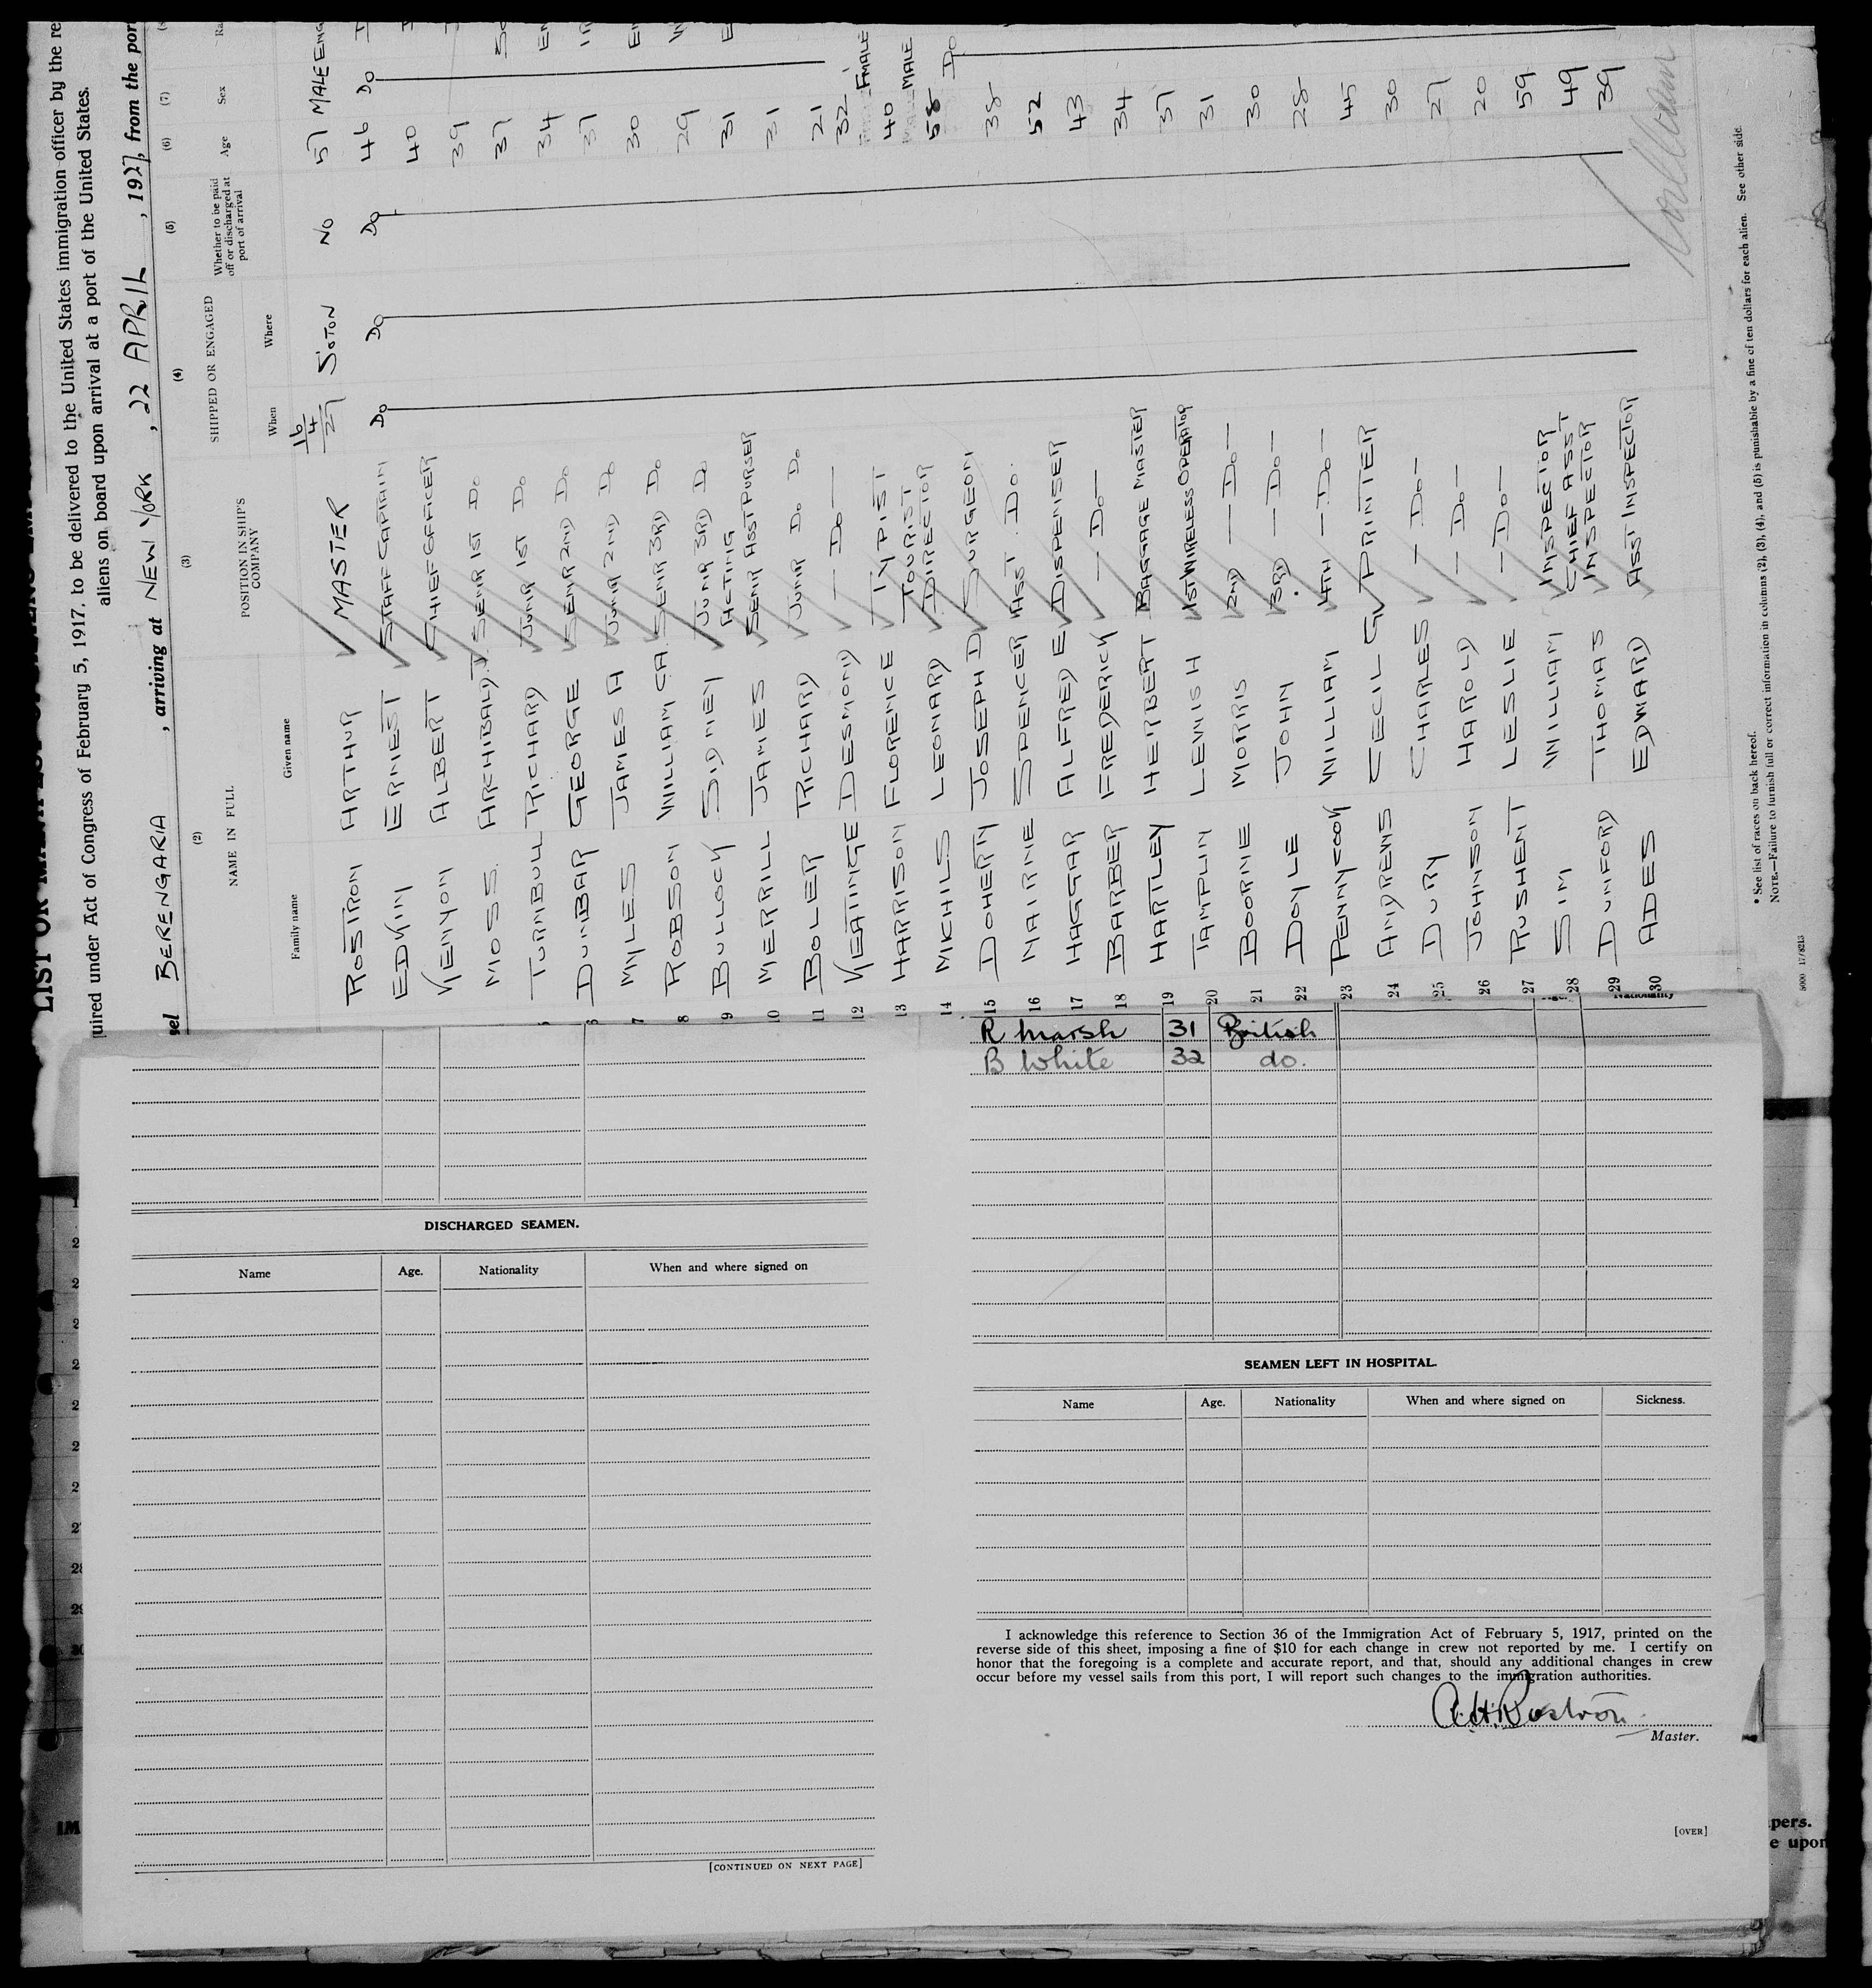 LIST OR MANIFEST OF
uired under Act of Congress of February 5, 1917, to be delivered to the United States immigration officer by the re
aliens on board upon arrival at a port of the United States.
sel BERENGARIA , arriving at NEW YORK , 22 APRIL , 1927, from the por
(2) (3) (4) (5) (6) (7)
NAME IN FULL POSITION IN SHIP'S COMPANY SHIPPED OR ENGAGED Whether to be paid off or discharged at port of arrival Age Sex
Family name Given name When Where
ROSTRON ARTHUR MASTER 16/4/27 S'OTON NO 57 MALE ENG
2 EDKIN ERNEST STAFF CAPTAIN Do Do Do 46 Do
KENYON ALBERT CHIEF OFFICER 40
MOSS ARCHIBALD T. SENR 1ST Do 39
TURNBULL RICHARD JUNR 1ST Do 37
6 DUNBAR GEORGE SENR 2ND Do 34
7 MYLES JAMES A JUNR 2ND Do 37
8 ROBSON WILLIAM CA. SENR 3RD Do 30
9 BULLOCK SIDNEY JUNR 3RD Do 29
10 MERRILL JAMES ACTING SENR ASST PURSER 31
11 BOLER RICHARD JUNR Do Do 31
12 KEATINGE DESMOND — Do — 21
13 HARRISON FLORENCE TYPIST 32 FMALE
14 MICHILS LEONARD TOURIST DIRECTOR 40 MALE
15 DOHERTY JOSEPH D SURGEON 58 Do
16 NAIRNE SPENCER ASST. Do. 38
17 HAGGAR ALFRED E DISPENSER 52
18 BARBER FREDERICK — Do — 43
19 HARTLEY HERBERT BAGGAGE MASTER 34
20 TAMPLIN LEWIS H 1ST WIRELESS OPERATOR 37
21 BOORNE MORRIS 2ND — Do — 31
22 DOYLE JOHN 3RD — Do — 30
23 PENNYCOOK WILLIAM 4TH — Do — 28
24 ANDREWS CECIL G PRINTER 45
25 DURY CHARLES — Do — 30
26 JOHNSON HAROLD — Do — 27
27 RUSHENT LESLIE — Do — 20
28 SIM WILLIAM INSPECTOR 59
29 DUNFORD THOMAS CHIEF ASST INSPECTOR 49
30 ADES EDWARD ASST INSPECTOR 39
* See list of races on back hereof.
NOTE.—Failure to furnish full or correct information in columns (2), (3), (4), and (5) is punishable by a fine of ten dollars for each alien. See other side.
5000 17/8213
R Marsh 31 British
B White 32 do.
DISCHARGED SEAMEN.
Name Age. Nationality When and where signed on
[CONTINUED ON NEXT PAGE]
SEAMEN LEFT IN HOSPITAL.
Name Age. Nationality When and where signed on Sickness.
I acknowledge this reference to Section 36 of the Immigration Act of February 5, 1917, printed on the
reverse side of this sheet, imposing a fine of $10 for each change in crew not reported by me. I certify on
honor that the foregoing is a complete and accurate report, and that, should any additional changes in crew
occur before my vessel sails from this port, I will report such changes to the immigration authorities.
A.H. Rostron
Master.
[OVER]
IM
pers.
e upon